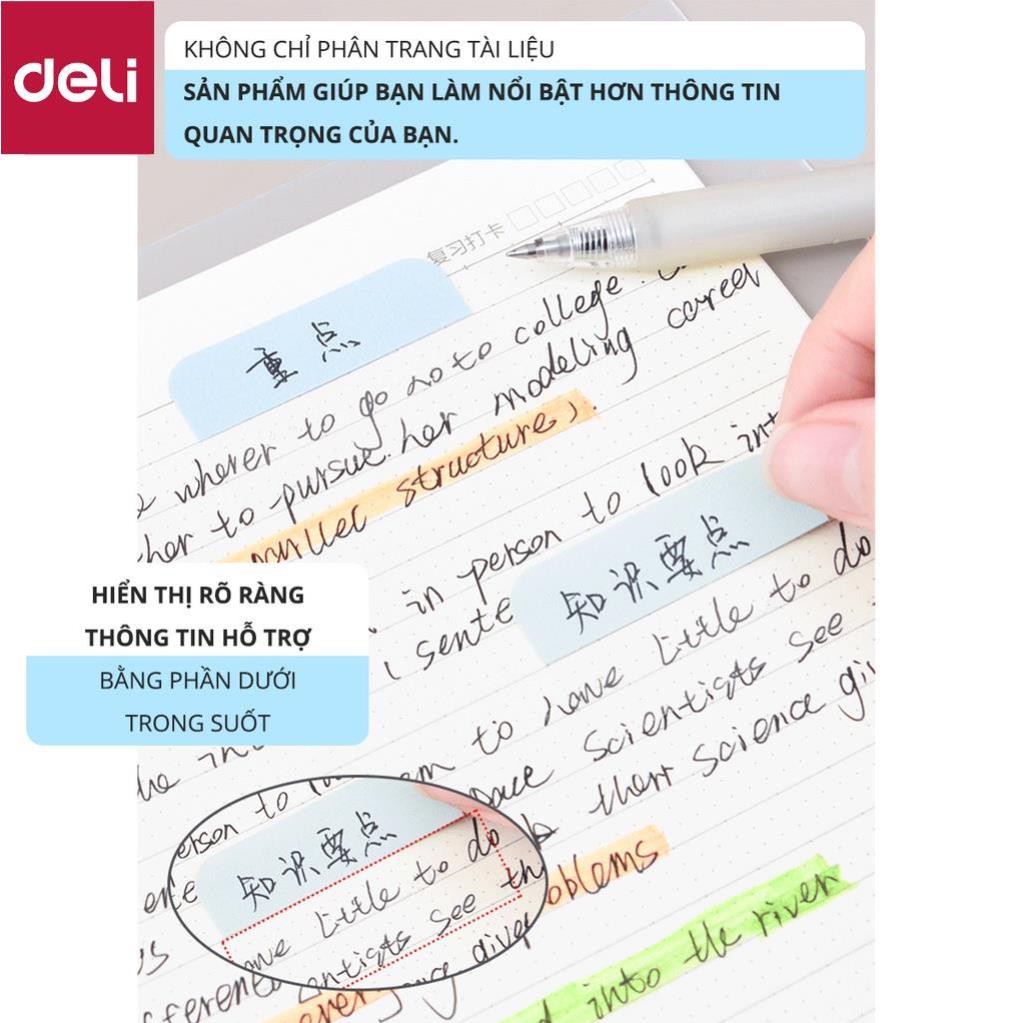 deli
KHÔNG CHỈ PHÂN TRANG TÀI LIỆU
SẢN PHẨM GIÚP BẠN LÀM NỔI BẬT HƠN THÔNG TIN
QUAN TRỌNG CỦA BẠN.
复习打卡
重点
wherer to go no to college.
her to pursue her modeling career
structure).
in person to look int
sente
知识要点
to have little to do
scientists see
their science giv
HIỂN THỊ RÕ RÀNG
THÔNG TIN HỖ TRỢ
BẰNG PHẦN DƯỚI
TRONG SUỐT
erson to
知识要点
little to do
entists see th
oblems
into the river